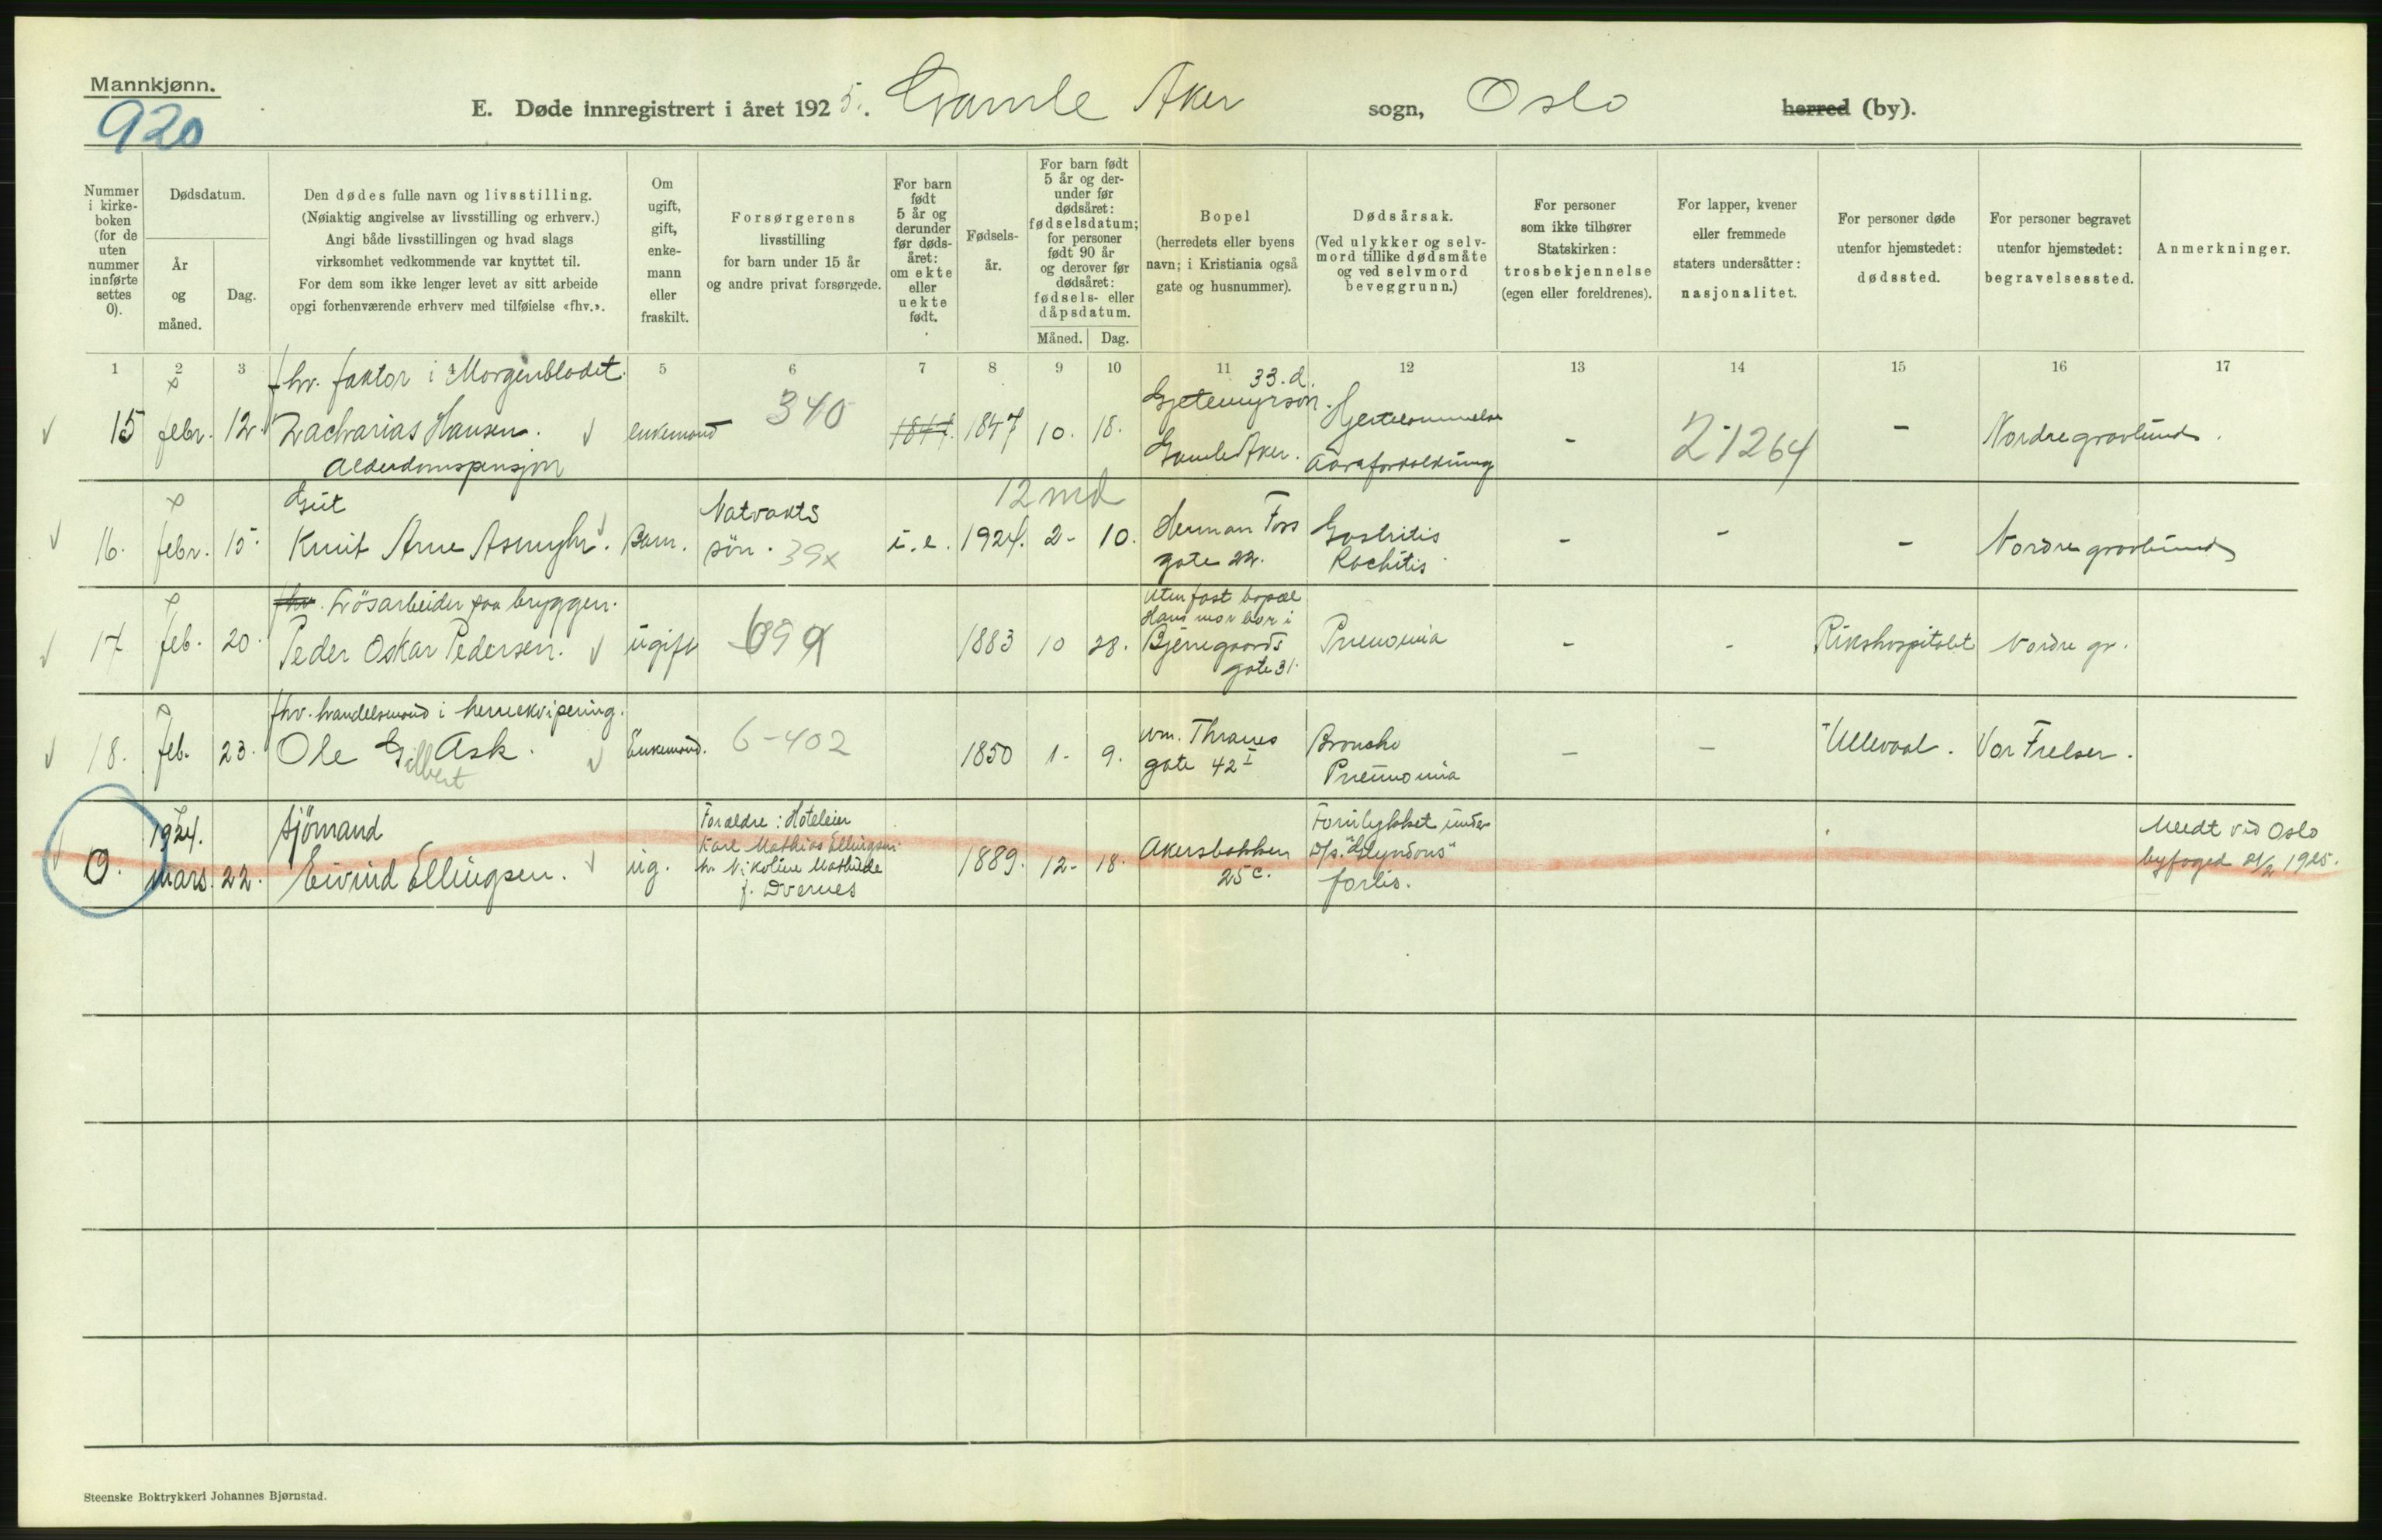 Mannkjønn.
920
E. Døde innregistrert i året 1925. Gamle Aker sogn, Oslo herred (by).
Nummer i kirke-boken (for de uten nummer innførte settes 0).
Dødsdatum.
År og måned.
Dag.
Den dødes fulle navn og livsstilling.
(Nøiaktig angivelse av livsstilling og erhverv.)
Angi både livsstillingen og hvad slags
virksomhet vedkommende var knyttet til.
For dem som ikke lenger levet av sitt arbeide
opgi forhenværende erhverv med tilføielse «fhv.».
Om ugift, gift, enke-mann eller fraskilt.
Forsørgerens
livsstilling
for barn under 15 år
og andre privat forsørgede.
For barn født 5 år og derunder før døds-året: om ekte eller uekte født.
Fødsels-år.
For barn født 5 år og der-under før dødsåret: fødselsdatum; for personer født 90 år og derover før dødsåret: fødsels- eller dåpsdatum.
Måned. Dag.
Bopel
(herredets eller byens
navn; i Kristiania også
gate og husnummer).
Dødsårsak.
(Ved ulykker og selv-
mord tillike dødsmåte
og ved selvmord
beveggrunn.)
For personer
som ikke tilhører
Statskirken:
trosbekjennelse
(egen eller foreldrenes).
For lapper, kvener
eller fremmede
staters undersåtter:
nasjonalitet.
For personer døde
utenfor hjemstedet:
dødssted.
For personer begravet
utenfor hjemstedet:
begravelsessted.
Anmerkninger.
1 2 3 4 5 6 7 8 9 10 11 12 13 14 15 16 17
fhv. faktor i Morgenbladet.
15 febr. 12. Zacharias Hansen. enkemand 340 1847 1847 10. 18.
Alderdomspensjon
Gjetemyrsvn. 33.d.
Gamle Aker.
Hjertelammelse
Aareforkalkning
- 2-1264 - Nordre gravlund.
Gut
16. febr. 15. Knut Arne Asmyhr. Barn.
Natvakts
søn. 39x
i.e. 1924. 2- 10.
12 md
Herman Foss
gate 22.
Gastritis
Rachitis
- - - Nordre gravlund
fhv. Løsarbeider paa bryggen.
17 feb. 20. Peder Oskar Pedersen. ugift 699 1883 10 28.
Uten fast bopæl
Hans mor bor i
Bjerregaards
gate 31.
Pneumonia
- - Rikshospitalet Nordre gr.
fhv. handelsmand i herreekvipering.
18. feb. 23. Ole G Ask. Enkemand. 6-402 1850 1- 9.
Gilbert
Wm. Thranes
gate 42 I
Broncho
Pneumonia
- - Ullevaal. Vor Frelser.
1924.
Sjömand
0. mars. 22. Eivind Ellingsen. ug.
Forældre: Hoteleier
Karl Mathias Ellingsen
h. Nikoline Mathilde
f. Dvernes
1889. 12- 18.
Akersbakken
25 c.
Forulykket under
D/s. "Glyndons"
forlis.
Meldt vid Oslo
byfoged 21/2 1925.
Steenske Boktrykkeri Johannes Bjørnstad.